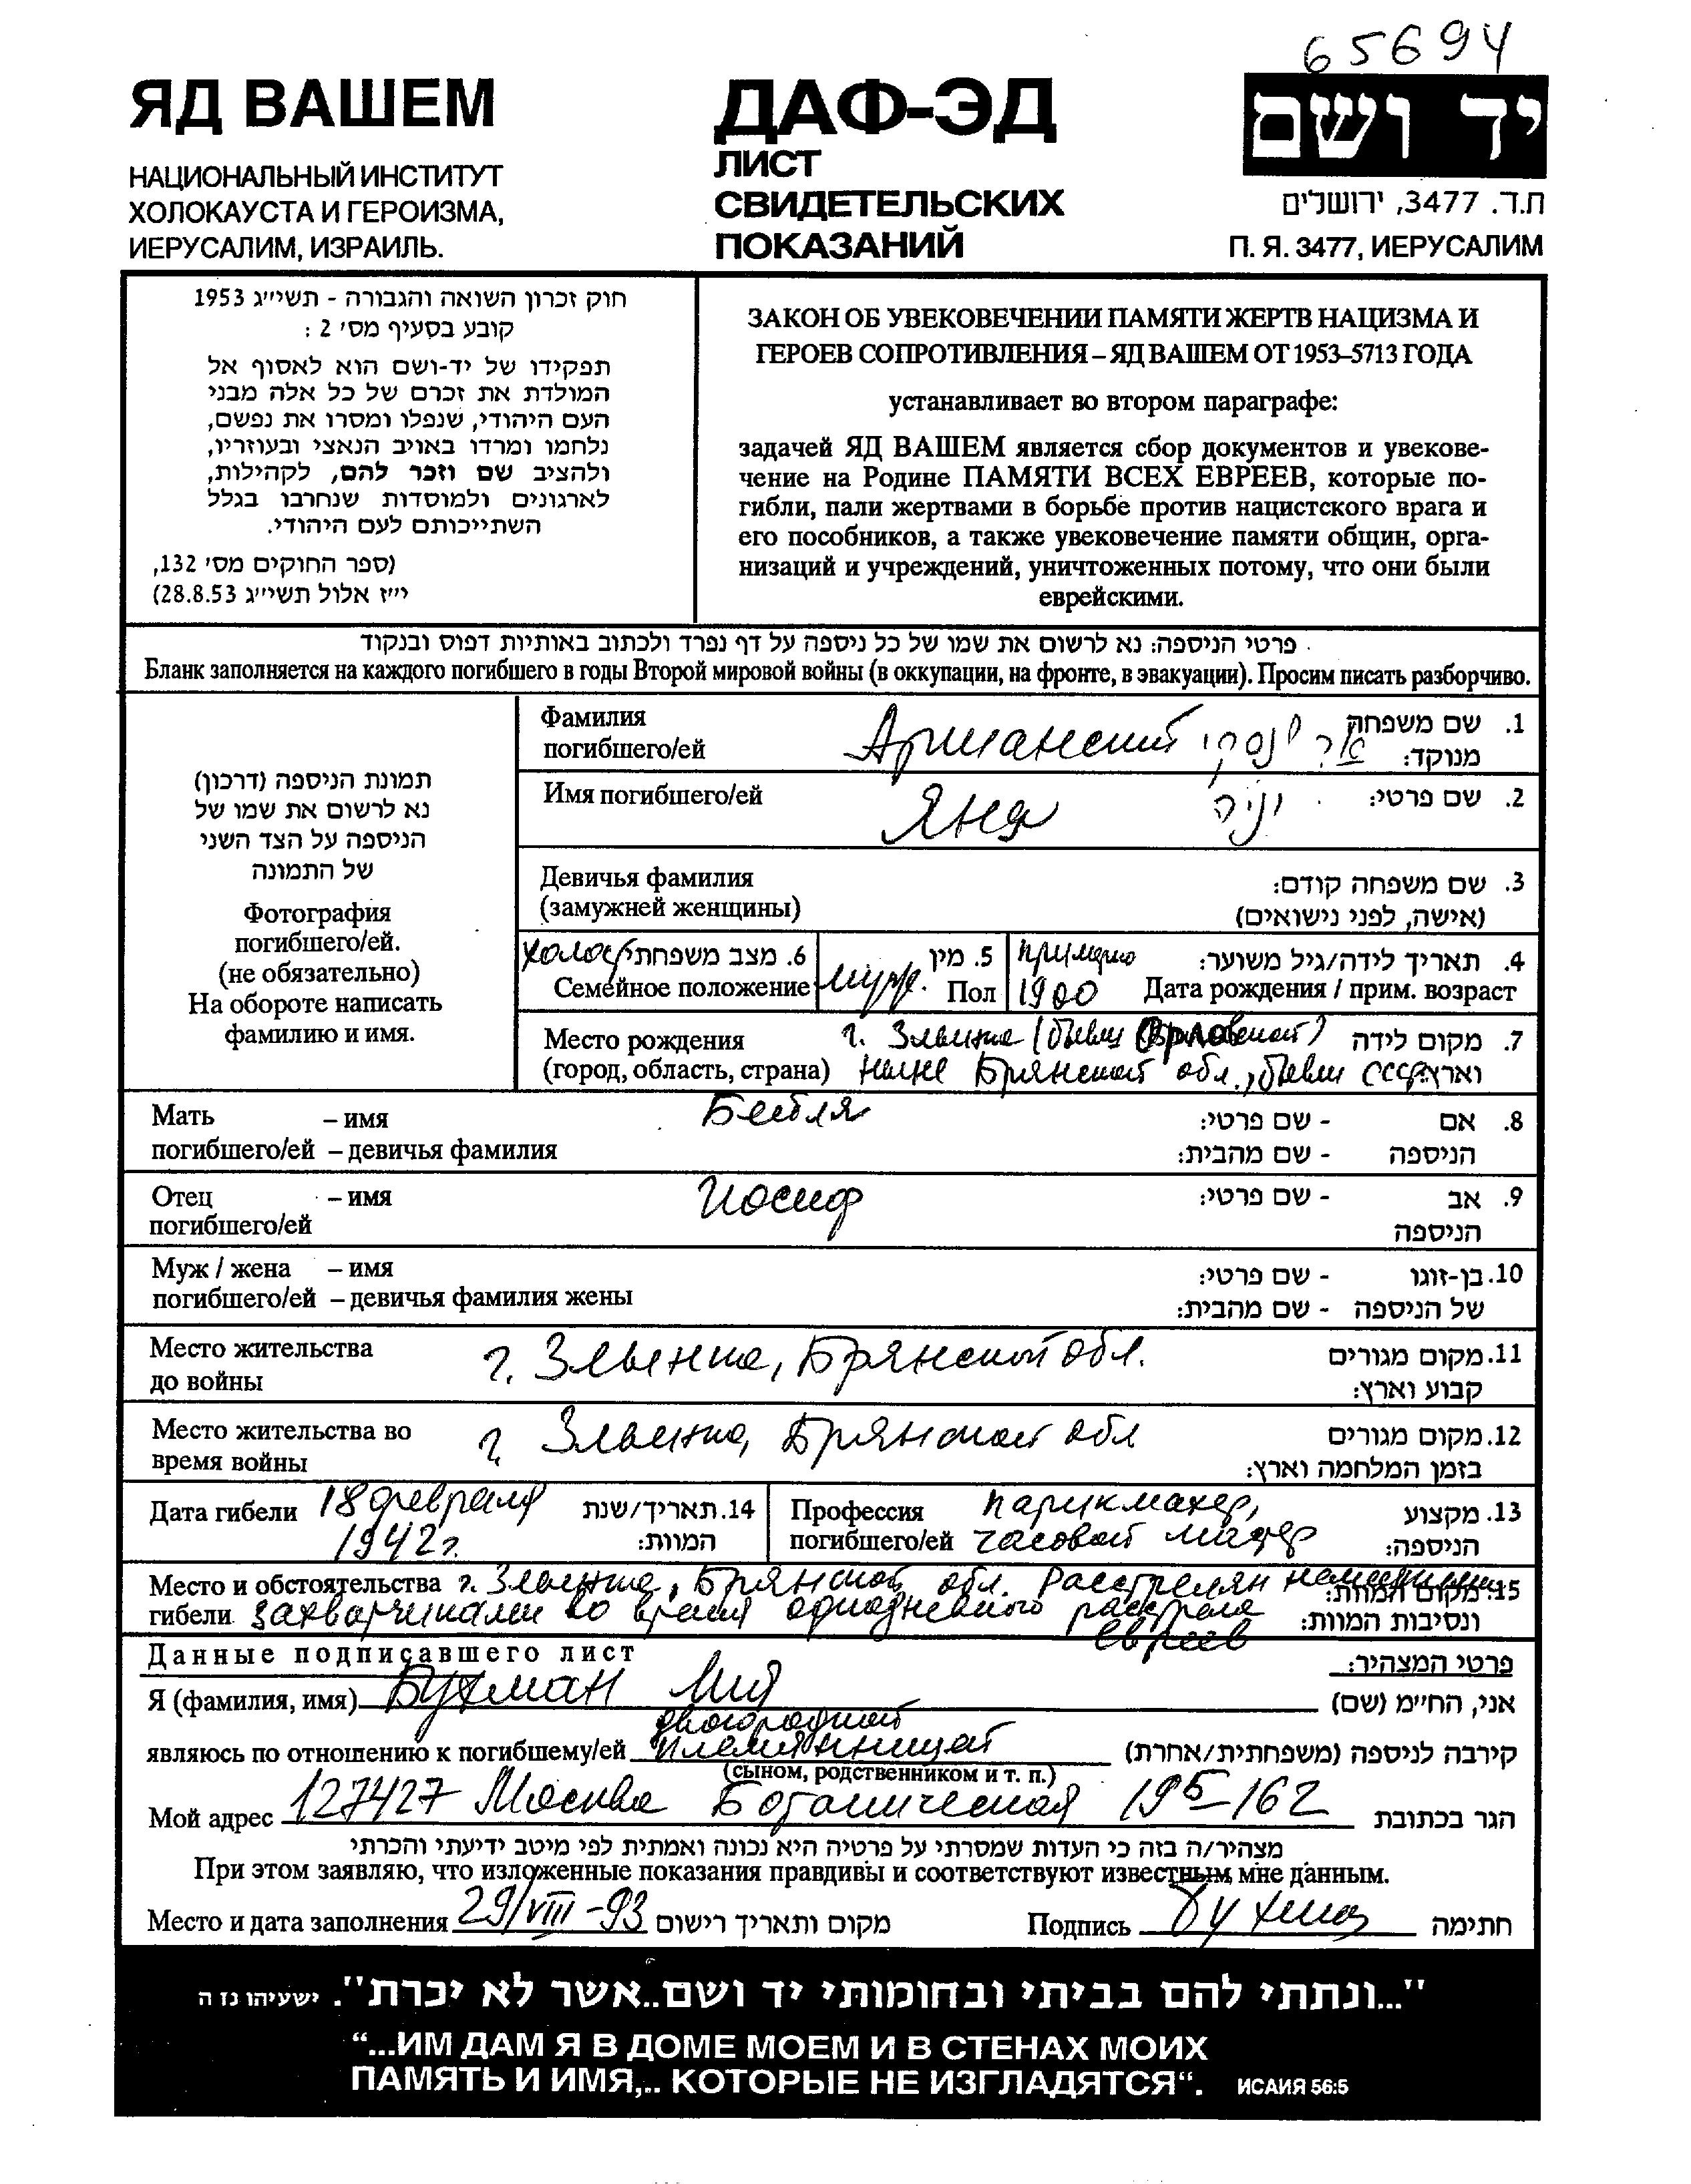 65694
ЯД ВАШЕМ
НАЦИОНАЛЬНЫЙ ИНСТИТУТ
ХОЛОКАУСТА И ГЕРОИЗМА,
ИЕРУСАЛИМ, ИЗРАИЛЬ.
ДАФ-ЭД
ЛИСТ
СВИДЕТЕЛЬСКИХ
ПОКАЗАНИЙ
יד ושם
ת.ד. 3477, ירושלים
П. Я. 3477, ИЕРУСАЛИМ
חוק זכרון השואה והגבורה - תשי״ג 1953
קובע בסעיף מס׳ 2 :
תפקידו של יד-ושם הוא לאסוף אל
המולדת את זכרם של כל אלה מבני
העם היהודי, שנפלו ומסרו את נפשם,
נלחמו ומרדו באויב הנאצי ובעוזריו,
ולהציב שם וזכר להם, לקהילות,
לארגונים ולמוסדות שנחרבו בגלל
השתייכותם לעם היהודי.
(ספר החוקים מס׳ 132,
י״ז אלול תשי״ג 28.8.53)
ЗАКОН ОБ УВЕКОВЕЧЕНИИ ПАМЯТИ ЖЕРТВ НАЦИЗМА И
ГЕРОЕВ СОПРОТИВЛЕНИЯ – ЯД ВАШЕМ ОТ 1953–5713 ГОДА
устанавливает во втором параграфе:
задачей ЯД ВАШЕМ является сбор документов и увекове-
чение на Родине ПАМЯТИ ВСЕХ ЕВРЕЕВ, которые по-
гибли, пали жертвами в борьбе против нацистского врага и
его пособников, а также увековечение памяти общин, орга-
низаций и учреждений, уничтоженных потому, что они были
еврейскими.
פרטי הניספה: נא לרשום את שמו של כל ניספה על דף נפרד ולכתוב באותיות דפוס ובנקוד
Бланк заполняется на каждого погибшего в годы Второй мировой войны (в оккупации, на фронте, в эвакуации). Просим писать разборчиво.
תמונת הניספה (דרכון)
נא לרשום את שמו של
הניספה על הצד השני
של התמונה
Фотография
погибшего/ей.
(не обязательно)
На обороте написать
фамилию и имя.
Фамилия Аршанский 1. שם משפחה
погибшего/ей מנוקד:
Имя погибшего/ей Яня יניה 2. שם פרטי:
Девичья фамилия 3. שם משפחה קודם:
(замужней женщины) (אישה, לפני נישואים)
холост 6. מצב משפחתי 5. מין примерно 4. תאריך לידה/גיל משוער:
Семейное положение муж. Пол 1900 Дата рождения / прим. возраст
Место рождения г. Злынка (бывш Орловской) 7. מקום לידה
(город, область, страна) ныне Брянской обл., бывш СССР וארץ:
Мать – имя Бейля - שם פרטי: 8. אם
погибшего/ей – девичья фамилия - שם מהבית: הניספה
Отец – имя Иосиф - שם פרטי: 9. אב
погибшего/ей הניספה
Муж / жена – имя - שם פרטי: 10. בן-זוגו
погибшего/ей – девичья фамилия жены - שם מהבית: של הניספה
Место жительства г. Злынка, Брянской обл. 11. מקום מגורים
до войны קבוע וארץ:
Место жительства во г. Злынка, Брянской обл 12. מקום מגורים
время войны בזמן המלחמה וארץ:
Дата гибели 18 февраля 14. תאריך/שנת
1942 г. המוות:
Профессия парикмахер, 13. מקצוע
погибшего/ей часовой мастер הניספה:
Место и обстоятельства г. Злынка, Брянской обл. Расстрелян немецкими 15. מקום המוות:
гибели захватчиками во время однодневного расстрела ונסיבות המוות:
евреев
Данные подписавшего лист פרטי המצהיר:
Я (фамилия, имя) Бухман Мия אני, החי״מ (שם)
двоюродной
являюсь по отношению к погибшему/ей племянницей קירבה לניספה (משפחתית/אחרת)
(сыном, родственником и т. п.)
Мой адрес 127427 Москва Ботаническая 19Б-162 הגר בכתובת
מצהיר/ה בזה כי העדות שמסרתי על פרטיה היא נכונה ואמתית לפי מיטב ידיעתי והכרתי
При этом заявляю, что изложенные показания правдивы и соответствуют известным мне данным.
Место и дата заполнения 29/VIII-93 מקום ותאריך רישום Подпись Бухман חתימה
"...ונתתי להם בביתי ובחומותי יד ושם..אשר לא יכרת". ישעיהו נו ה
“...ИМ ДАМ Я В ДОМЕ МОЕМ И В СТЕНАХ МОИХ
ПАМЯТЬ И ИМЯ,.. КОТОРЫЕ НЕ ИЗГЛАДЯТСЯ“. ИСАИЯ 56:5